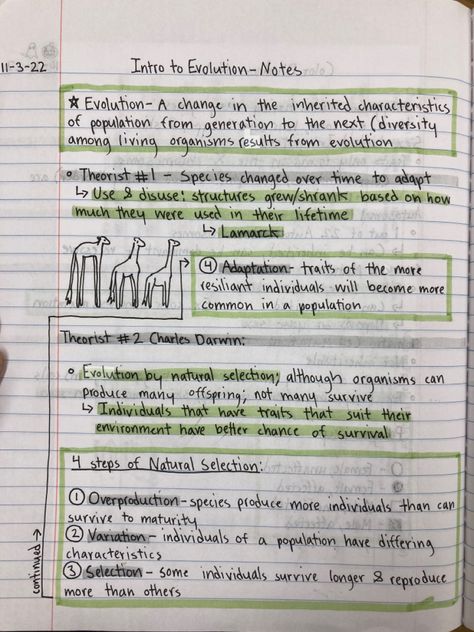 11-3-22
Intro to Evolution - Notes
☆ Evolution - A change in the inherited characteristics
of population from generation to the next (diversity
among living organisms results from evolution
° Theorist #1 - Species changed over time to adapt
↳ Use & disuse: structures grew/shrank based on how
much they were used in their lifetime
↳ Lamarck
④ Adaptation - traits of the more
resilient individuals will become more
common in a population
Theorist #2 Charles Darwin:
° Evolution by natural selection; although organisms can
produce many offspring; not many survive
↳ Individuals that have traits that suit their
environment have better chance of survival
4 steps of Natural Selection:
① Overproduction - species produce more individuals than can
survive to maturity
② Variation - individuals of a population have differing
characteristics
③ Selection - some individuals survive longer & reproduce
more than others
continued →